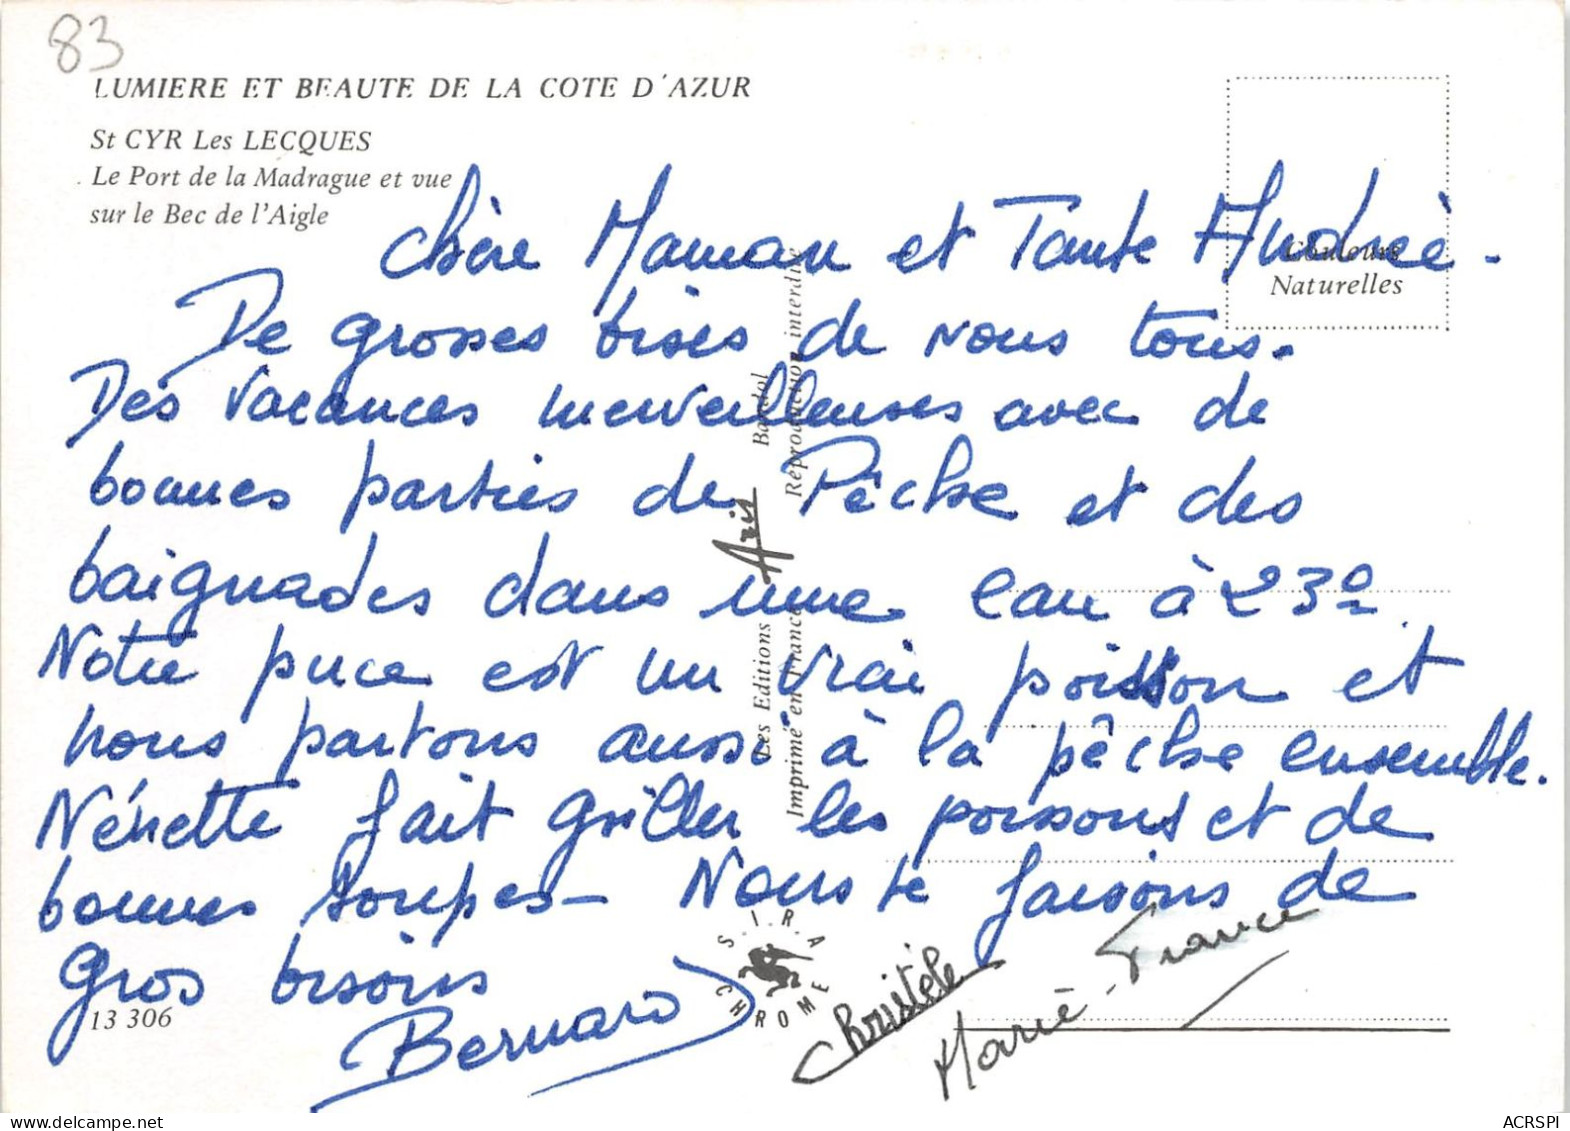 83
LUMIERE ET BEAUTE DE LA COTE D'AZUR
St CYR Les LECQUES
Le Port de la Madrague et vue
sur le Bec de l'Aigle
Couleurs
Naturelles
Chère Maman et Tante Andrée -
De grosses bises de nous tous.
Des vacances merveilleuses avec de
bonnes parties de Pêche et des
baignades dans une eau à 23º.
Notre puce est un vrai poisson et
nous partons aussi à la pêche ensemble.
Nénette fait griller les poissons et de
bonnes soupes - Nous te faisons de
gros bisous
Bernard
Christèle
Marie-France
Les Editions Aris Bandol
Imprimé en France Réproduction interdite
S.I.R.A
CHROME
13 306
ACRSPI